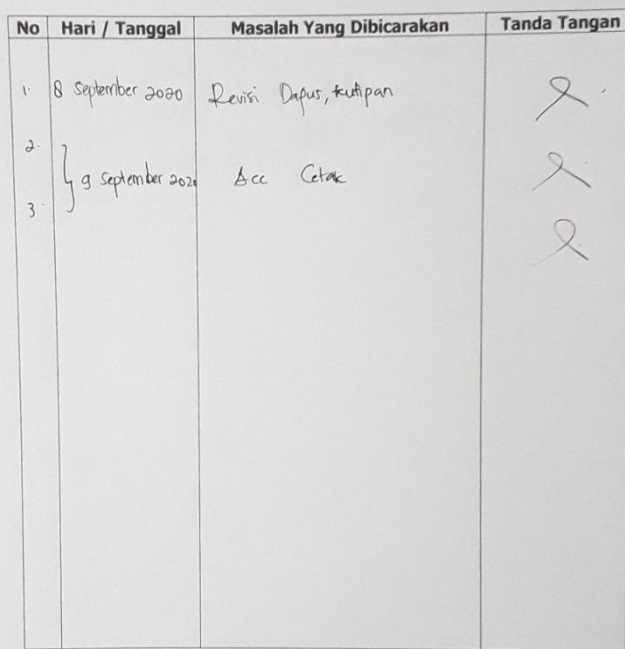 No Hari / Tanggal Masalah Yang Dibicarakan Tanda Tangan
1. 8 September 2020 Revisi Dapus, kutipan
2.
9 September 2020 Acc Cetak
3.